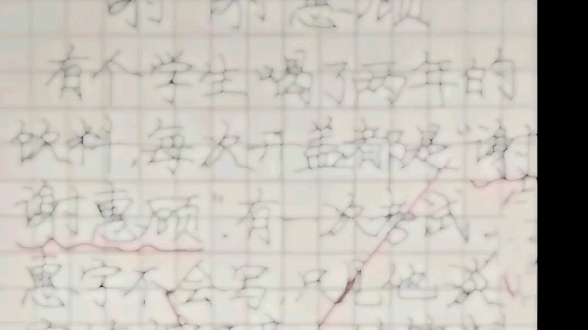 谢谢惠顾
有个学生喝了两年的
饮料,每次开盖都是“谢
谢惠顾”。有一次考试
惠字不会写,只见他淡